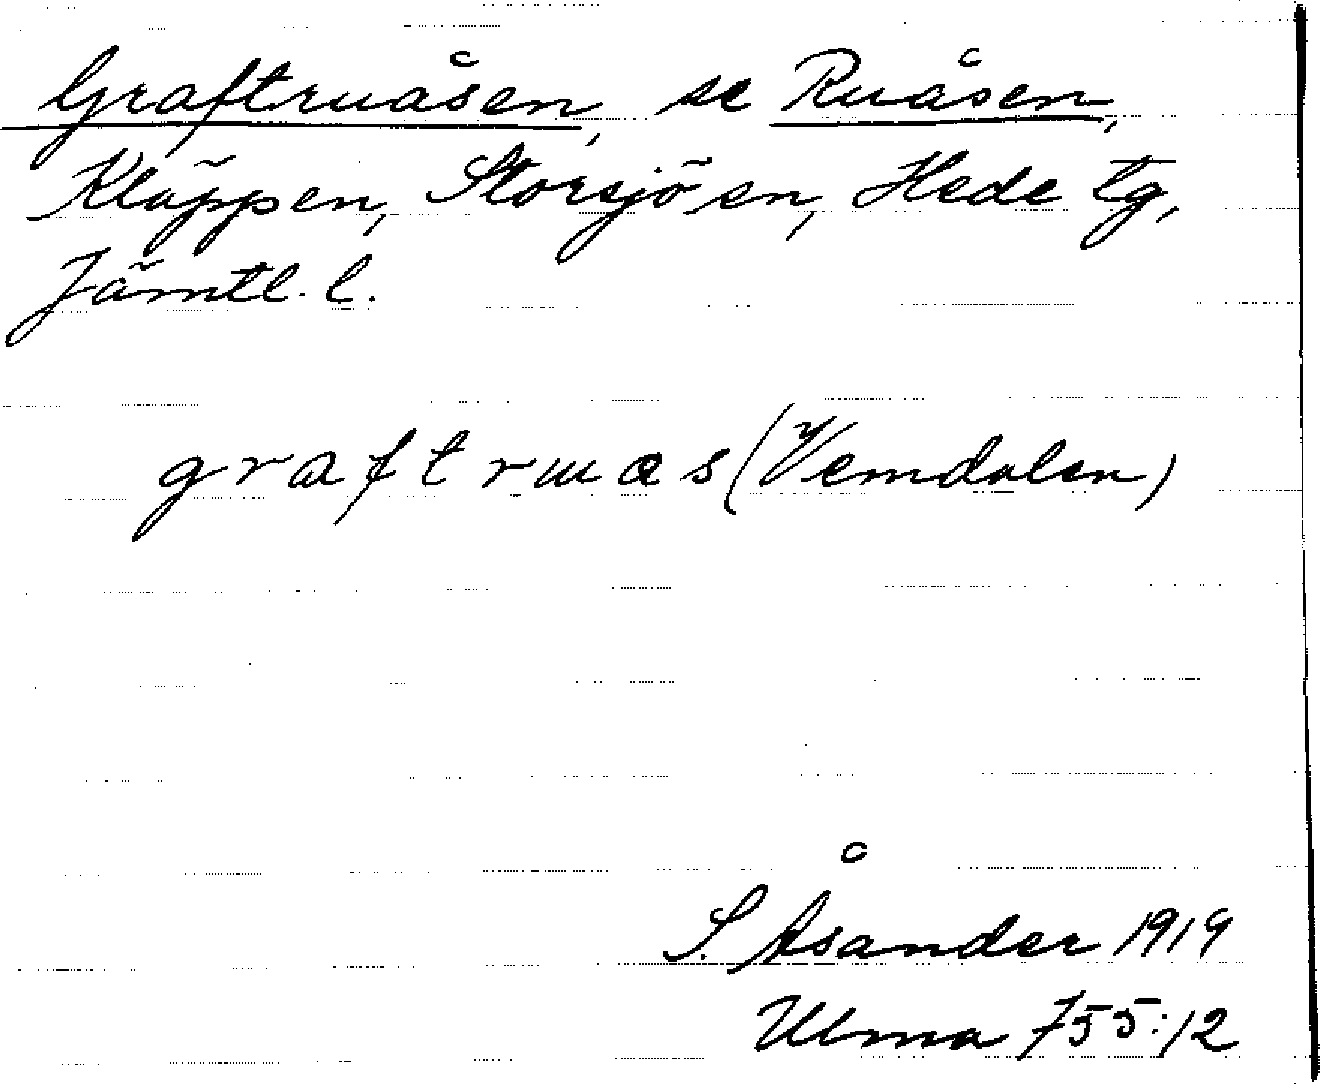 Graftruåsen, se Ruåsen,
Kläppen, Storsjöen, Hede tg,
Jämtl. l.
graftruas (Vemdalen)
S. Åsander 1919
Ulma 755:12